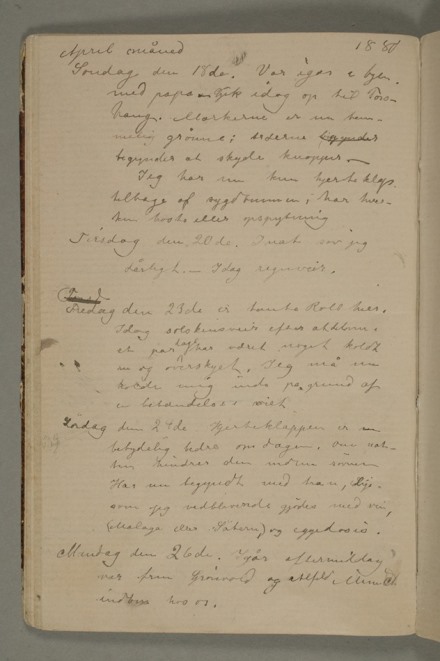 April måned 1880
Søndag den 18de. Var igår i byen
med papa gik idag op til
Markerne er nu tem-
melig grønne;
begynder at skyde knopper.
Jeg har nu kun hjerteklap
tilbage af sygdommen; har hver-
ken hoste eller opspytning
Tirsdag den 20de. Inat sov jeg
dårligt. — Idag regnveir.
Fredag den 23de er tante her.
Idag solskinsveir efter at
et par dage har været noget koldt
og overskyet. Jeg må nu
holde mig inde på grund af
en
Lørdag den 24de Hjerteklappen er nu
betydelig bedre om dagen, om nat-
ten hindrer den
Har nu begyndt med
som jeg
(Malaga eller og eggedosis.
Mandag den 26de. Igår eftermiddag
var frøken Grønvold og Munch
hos os.